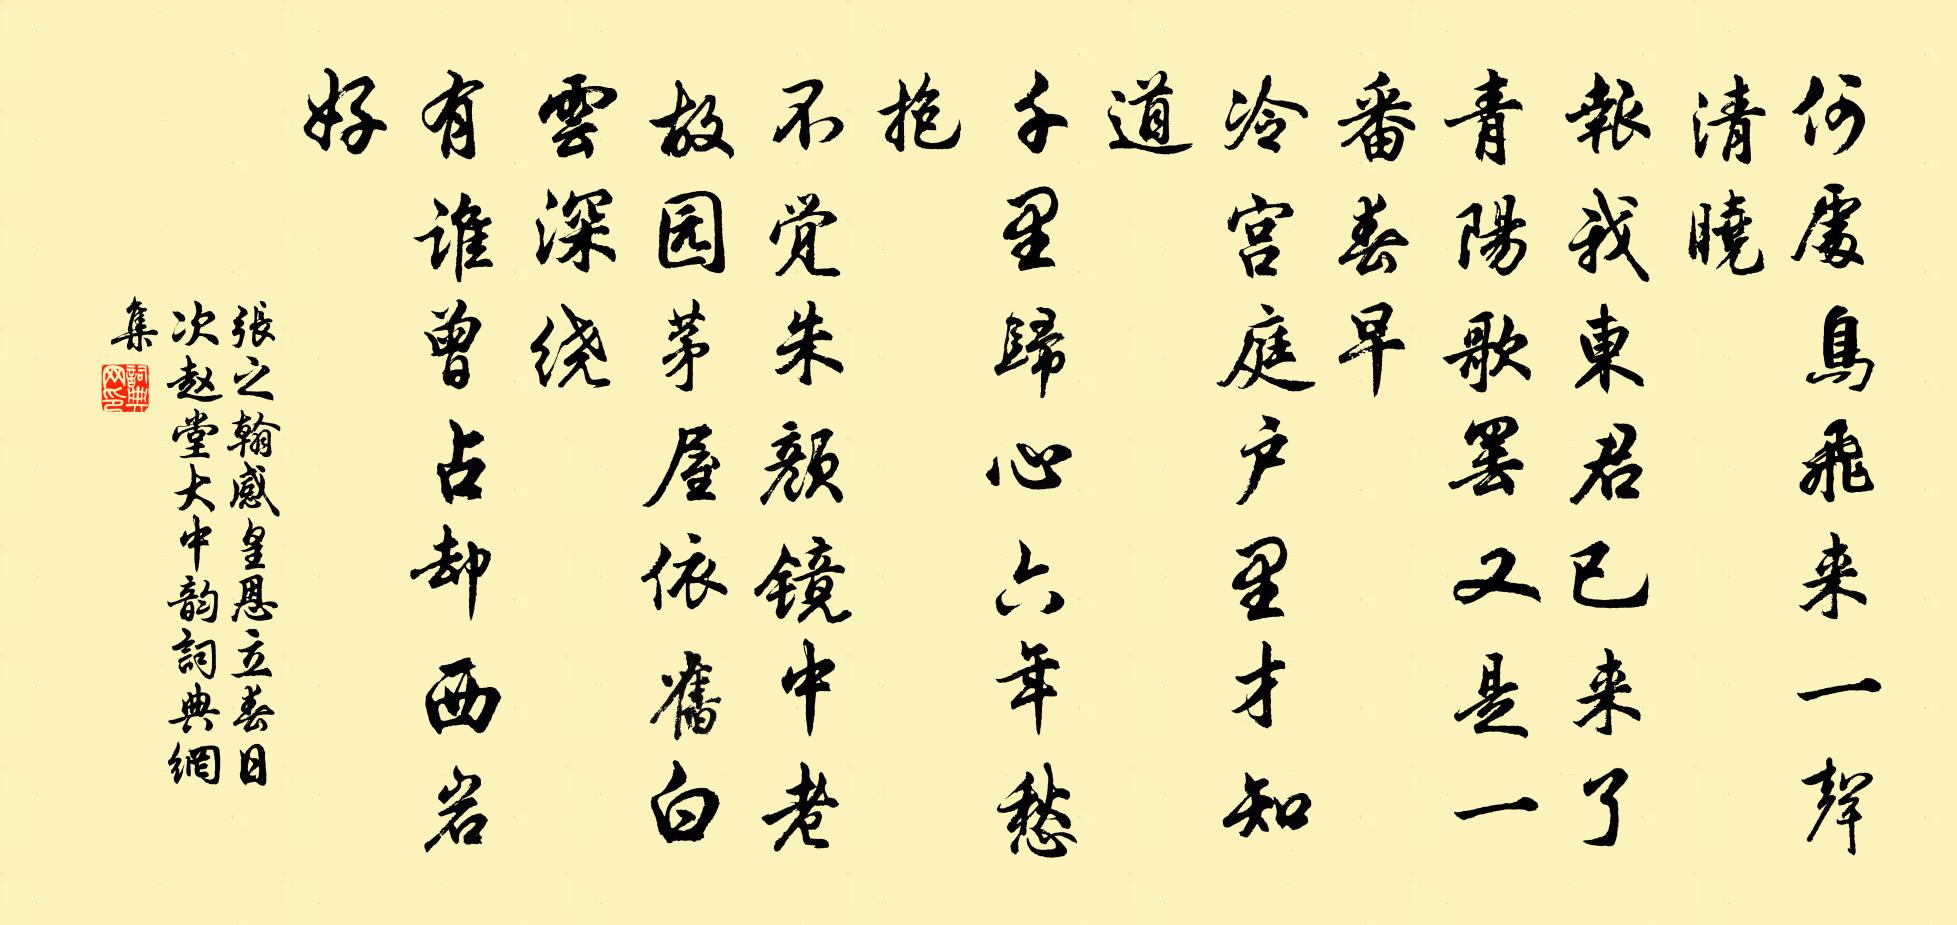 何處鳥飛来一聲
清曉
報我東君已来了
青陽歌罢又是一
番春早
冷宫庭户里才知
道
千里歸心六年愁
抱
不觉朱颜镜中老
故园茅屋依舊白
雲深绕
有谁曾占却西岩
好
張之翰感皇恩立春日
次赵堂大中韵詞典網
集
詞典网印